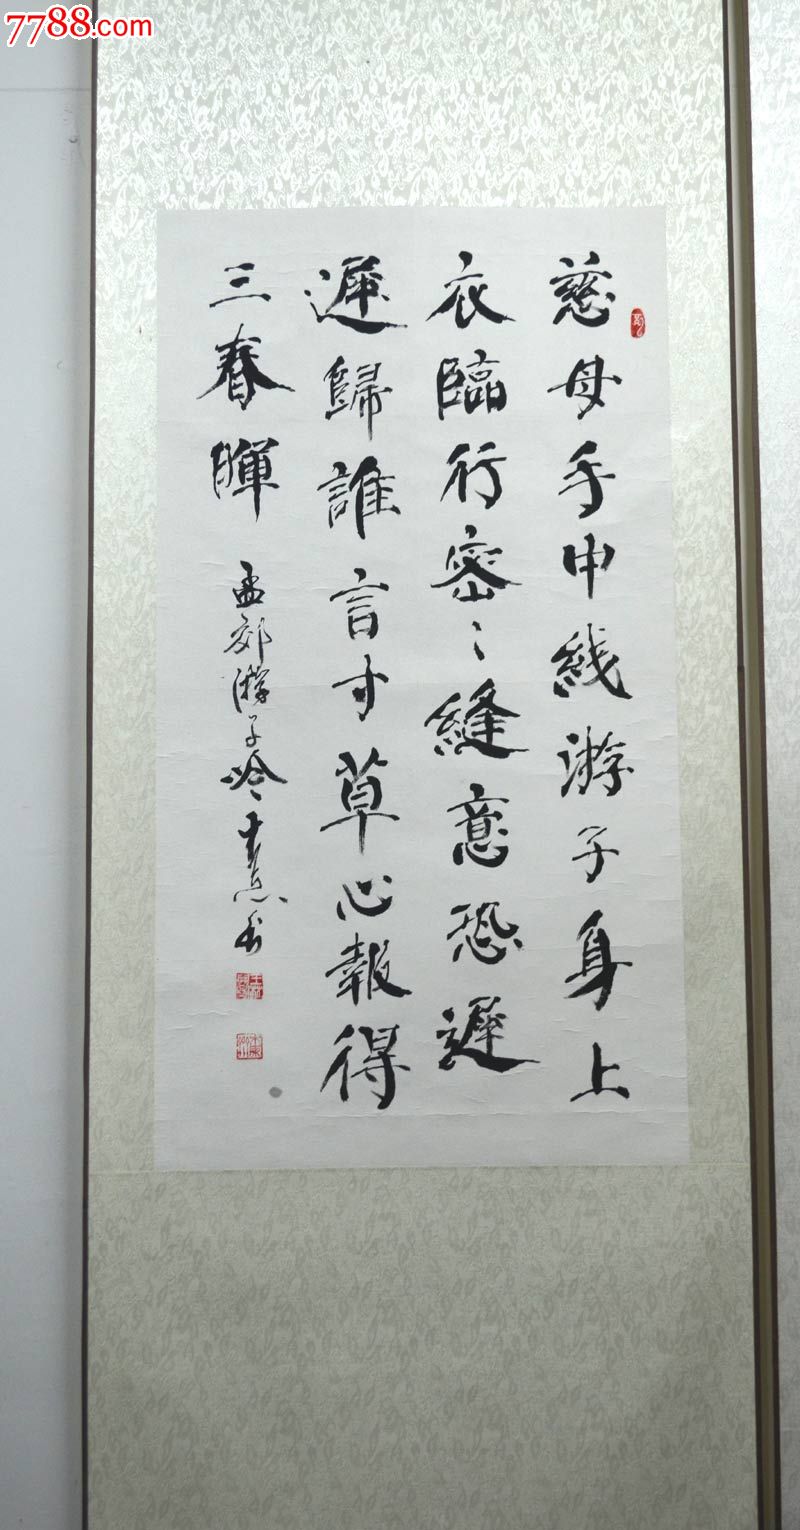 7788.com
慈母手中綫游子身上
衣臨行密〻縫意恐遲
遲歸誰言寸草心報得
三春暉 孟郊游子吟